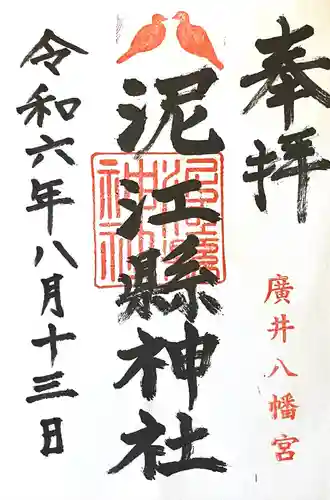 奉拝
廣井八幡宮
泥江縣神社
令和六年八月十三日